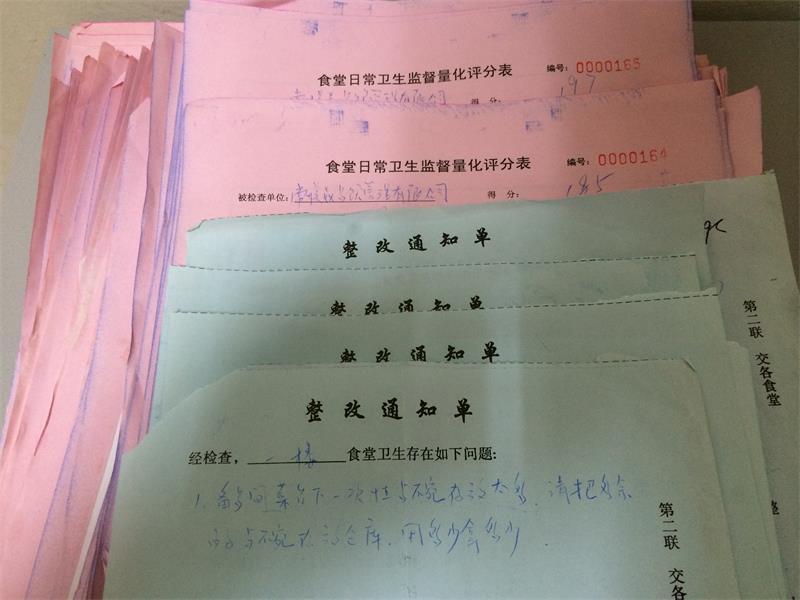 食堂日常卫生监督量化评分表
编号: 0000165
得 分: 197
食堂日常卫生监督量化评分表
编号: 0000164
被检查单位: 有限公司 得 分: 185
整改通知单
整改通知单
整改通知单
第二联 交各食堂
整改通知单
经检查, 一楼 食堂卫生存在如下问题:
1. 备餐间菜台下一次性餐碗存放太多, 请把多余
的餐碗存放仓库, 用多少拿多少.
第二联 交各